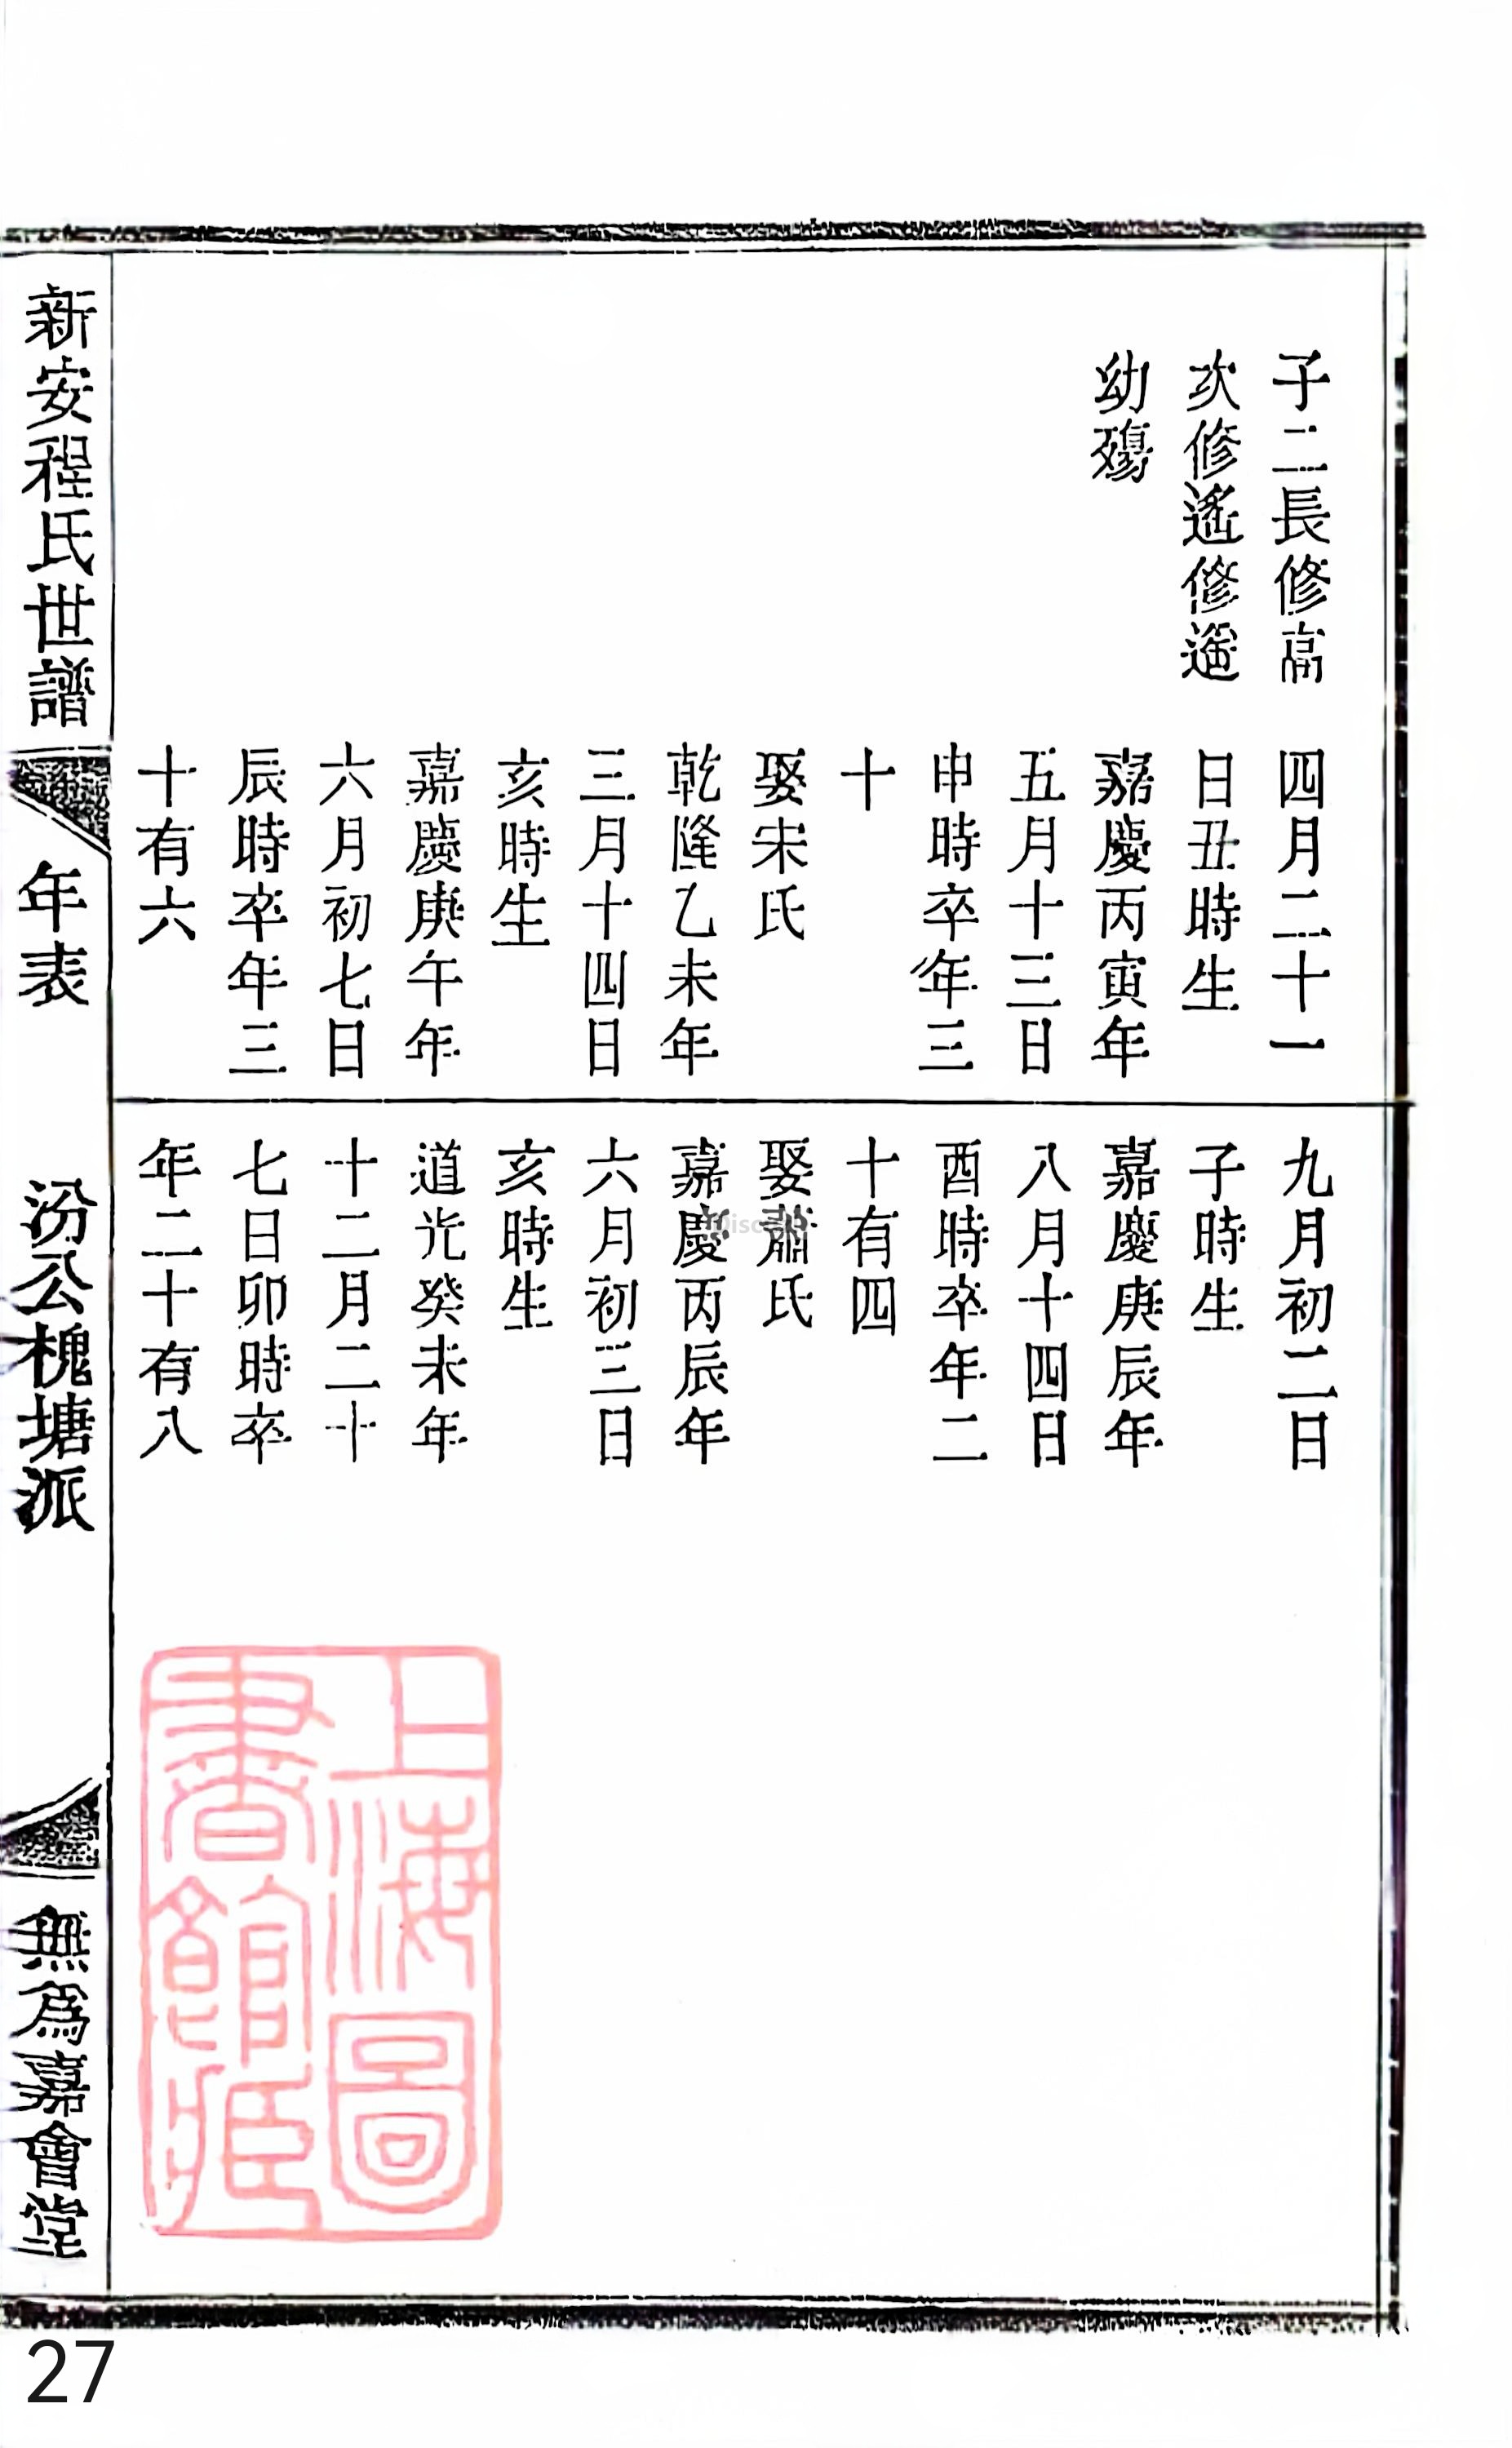 子二長修高
次修遙修遥
幼殤
四月二十一
日丑時生
嘉慶丙寅年
五月十三日
申時卒年三
十
娶宋氏
乾隆乙未年
三月十四日
亥時生
嘉慶庚午年
六月初七日
辰時卒年三
十有六
九月初二日
子時生
嘉慶庚辰年
八月十四日
酉時卒年二
十有四
娶蕭氏
嘉慶丙辰年
六月初三日
亥時生
道光癸未年
十二月二十
七日卯時卒
年二十有八
新安程氏世譜
年表
汾公槐塘派
無爲嘉會堂
上海圖
書館藏
27